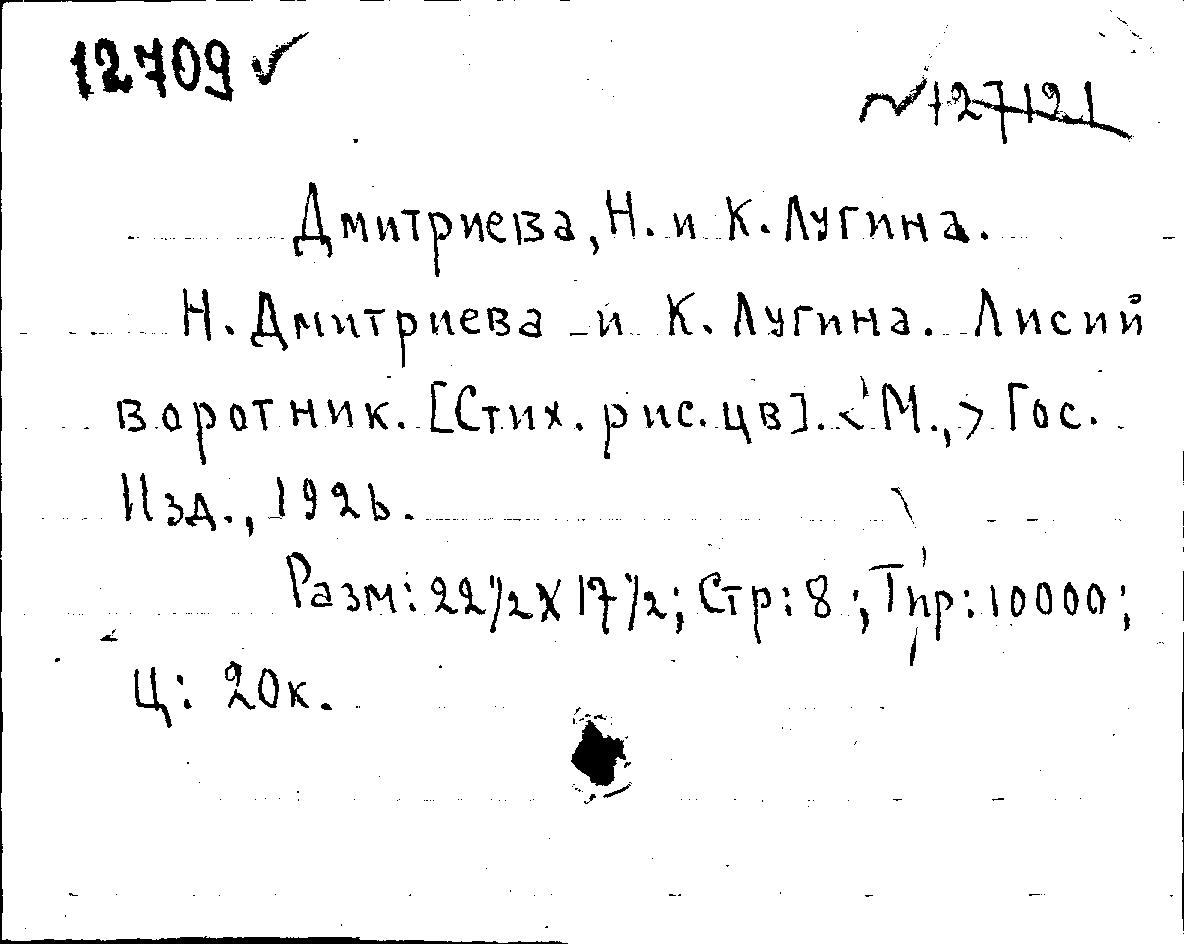 12709 ✓
127121
Дмитриева, Н. и К. Лугина.
Н. Дмитриева и К. Лугина. Лисий
воротник. [Стих. рис. цв]. <М.,> Гос.
Изд., 1926.
Разм: 22 1/2 X 17 1/2; Стр: 8; Тир: 10000;
Ц: 20к.